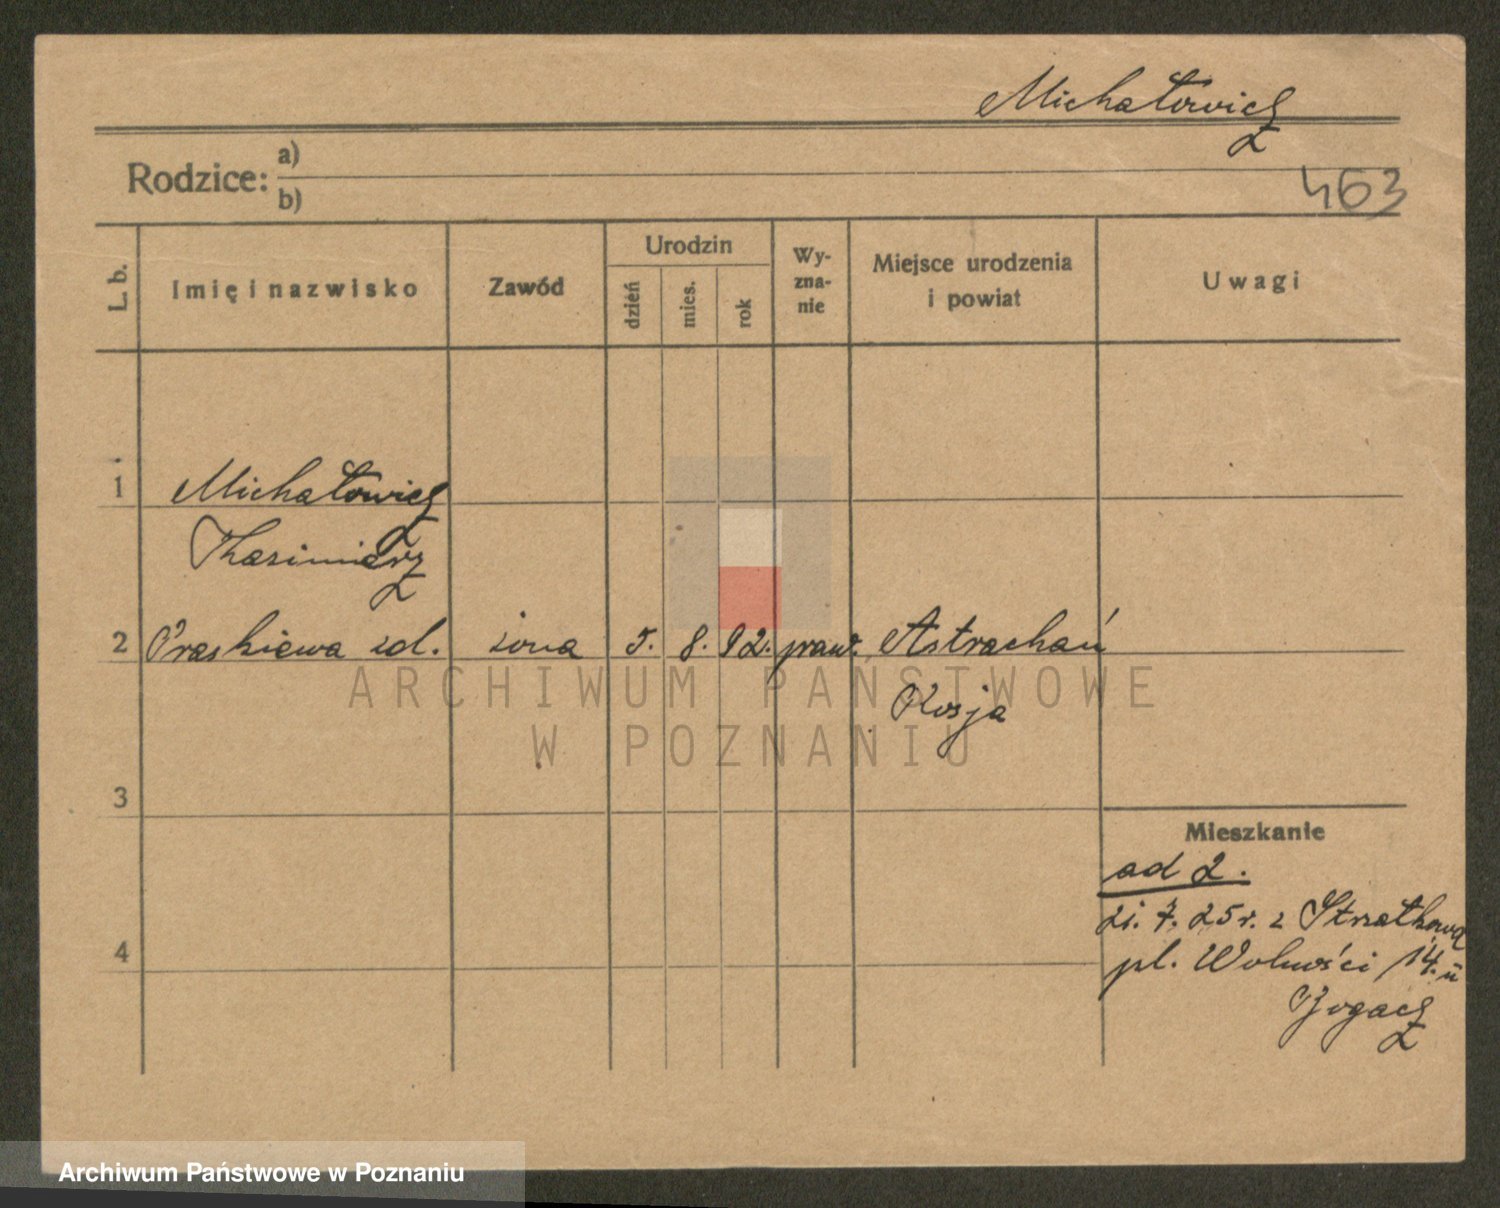 Michałowicz
Rodzice: a)
b)
463
L. b.
Imię i nazwisko
Zawód
Urodzin
dzień
mies.
rok
Wy-
zna-
nie
Miejsce urodzenia
i powiat
Uwagi
1 Michałowicz
Kazimierz
2 Praskiewa zd. żona 5. 8. 92. praw. Astrachań
Rosja
ARCHIWUM PAŃSTWOWE
W POZNANIU
3
Mieszkanie
ad 2.
21. 7. 25 r. z Strzałkowa
pl. Wolności 14. II
Bogacz
4
Archiwum Państwowe w Poznaniu